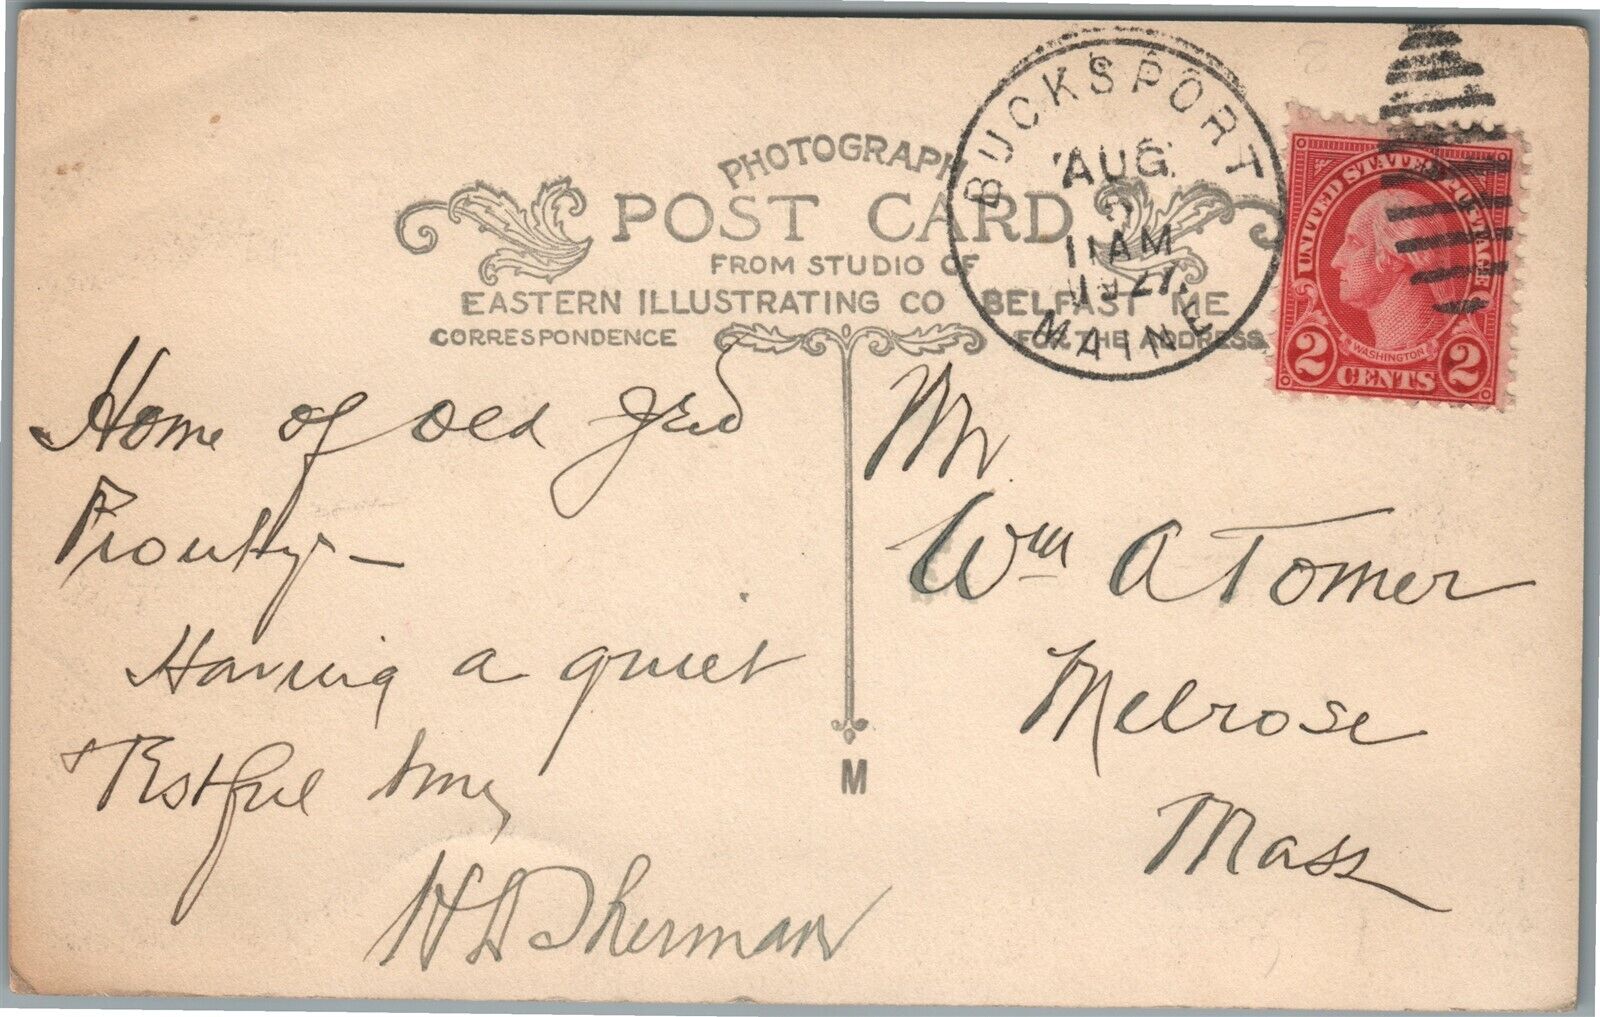 PHOTOGRAPH
POST CARD
FROM STUDIO OF
EASTERN ILLUSTRATING CO BELFAST ME
CORRESPONDENCE
FOR THE ADDRESS
BUCKSPORT
AUG
11 AM
MAINE
UNITED STATES POSTAGE
WASHINGTON
2 CENTS 2
Home of old
Prouty -
Having a quiet
+ Restful time
H L Sherman
M
Mr
Wm A Tomer
Melrose
Mass